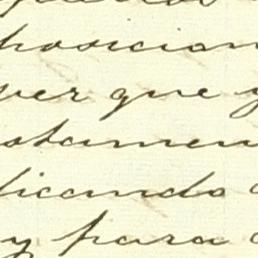 posicion
ver que y
stamen
licando
y para